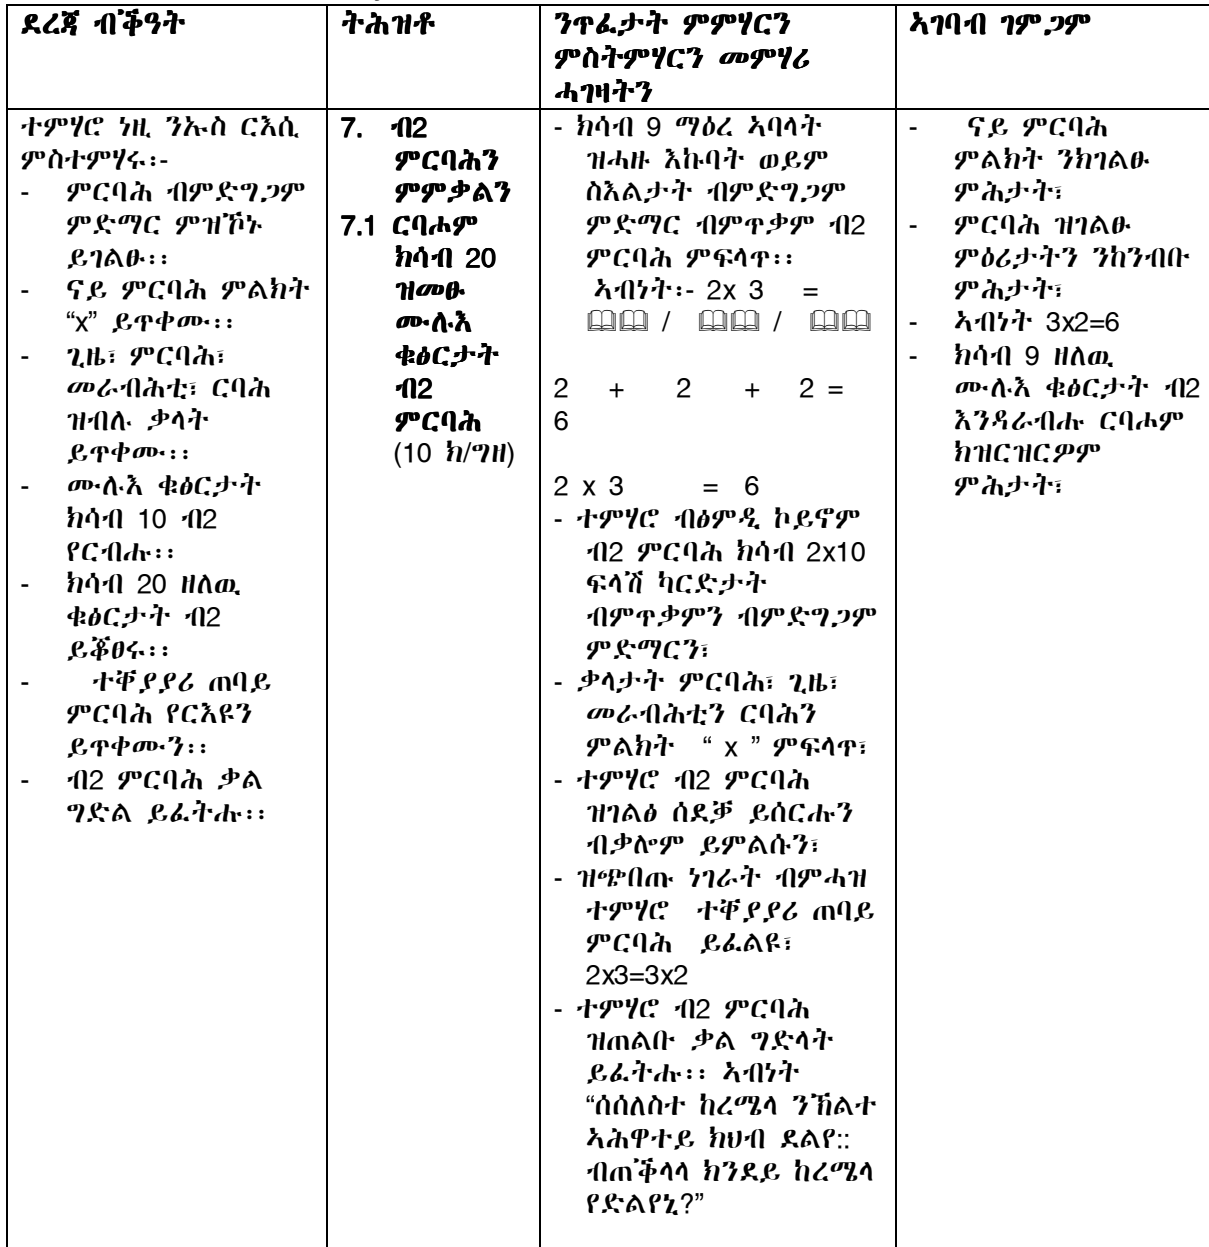 ደረጃ ብቕዓት
ትሕዝቶ
ንጥፈታት ምምሃርን
ምስትምሃርን መምሃሪ
ሓገዛትን
ኣገባብ ገምጋም
ተምሃሮ ነዚ ንኡስ ርእሲ
ምስተምሃሩ፡-
- ምርባሕ ብምድግጋም
ምድማር ምዝኾኑ
ይገልፁ፡፡
- ናይ ምርባሕ ምልክት
“x” ይጥቀሙ፡፡
- ጊዜ፣ ምርባሕ፣
መራብሕቲ፣ ርባሕ
ዝብሉ ቃላት
ይጥቀሙ፡፡
- ሙሉእ ቁፅርታት
ክሳብ 10 ብ2
የርብሑ፡፡
- ክሳብ 20 ዘለዉ
ቁፅርታት ብ2
ይቖፀሩ፡፡
- ተቐያያሪ ጠባይ
ምርባሕ የርእዩን
ይጥቀሙን፡፡
- ብ2 ምርባሕ ቃል
ግድል ይፈትሑ፡፡
7. ብ2
ምርባሕን
ምምቃልን
7.1 ርባሖም
ክሳብ 20
ዝመፁ
ሙሉእ
ቁፅርታት
ብ2
ምርባሕ
(10 ክ/ግዘ)
- ክሳብ 9 ማዕረ ኣባላት
ዝሓዙ እኩባት ወይም
ስእልታት ብምድግጋም
ምድማር ብምጥቃም ብ2
ምርባሕ ምፍላጥ፡፡
ኣብነት፡- 2x 3 =
🕮🕮 / 🕮🕮 / 🕮🕮
2 + 2 + 2 =
6
2 x 3 = 6
- ተምሃሮ ብፅምዲ ኮይኖም
ብ2 ምርባሕ ክሳብ 2x10
ፍላሽ ካርድታት
ብምጥቃምን ብምድግጋም
ምድማርን፣
- ቃላታት ምርባሕ፣ ጊዜ፣
መራብሕቲን ርባሕን
ምልክት “ x ” ምፍላጥ፣
- ተምሃሮ ብ2 ምርባሕ
ዝገልፅ ሰደቓ ይሰርሑን
ብቃሎም ይምልሱን፣
- ዝጭበጡ ነገራት ብምሓዝ
ተምሃሮ ተቐያያሪ ጠባይ
ምርባሕ ይፈልዩ፣
2x3=3x2
- ተምሃሮ ብ2 ምርባሕ
ዝጠልቡ ቃል ግድላት
ይፈትሑ፡፡ ኣብነት
“ሰሰለስተ ከረሜላ ንኽልተ
ኣሕዋተይ ክህብ ደልየ::
ብጠቕላላ ክንደይ ከረሜላ
የድልየኒ?”
- ናይ ምርባሕ
ምልክት ንክገልፁ
ምሕታት፣
- ምርባሕ ዝገልፁ
ምዕሪታትን ንከንብቡ
ምሕታት፣
- ኣብነት 3x2=6
- ክሳብ 9 ዘለዉ
ሙሉእ ቁፅርታት ብ2
እንዳራብሑ ርባሖም
ክዝርዝርዎም
ምሕታት፣